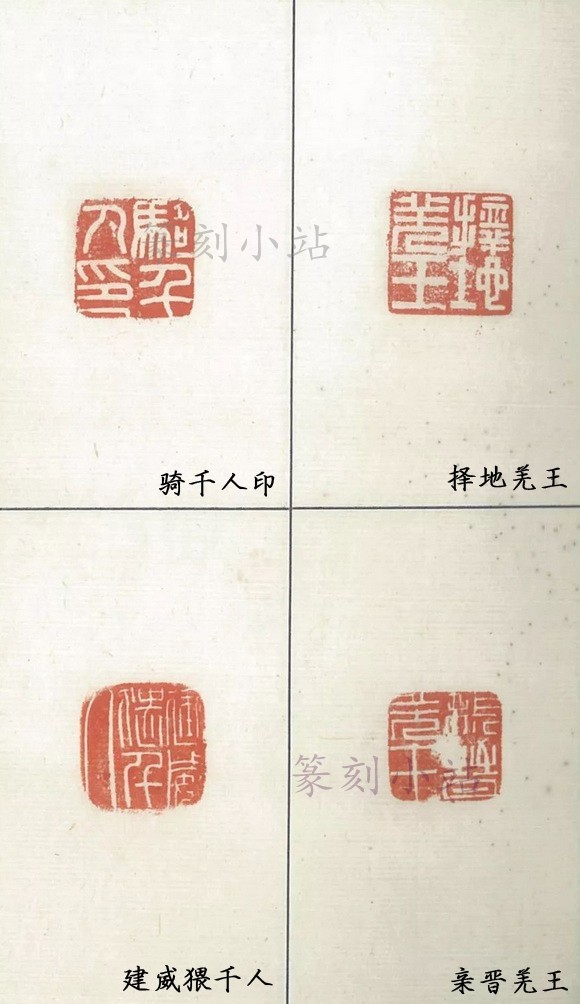 篆刻小站
骑千人印
择地羌王
篆刻小站
建威猥千人
亲晋羌王